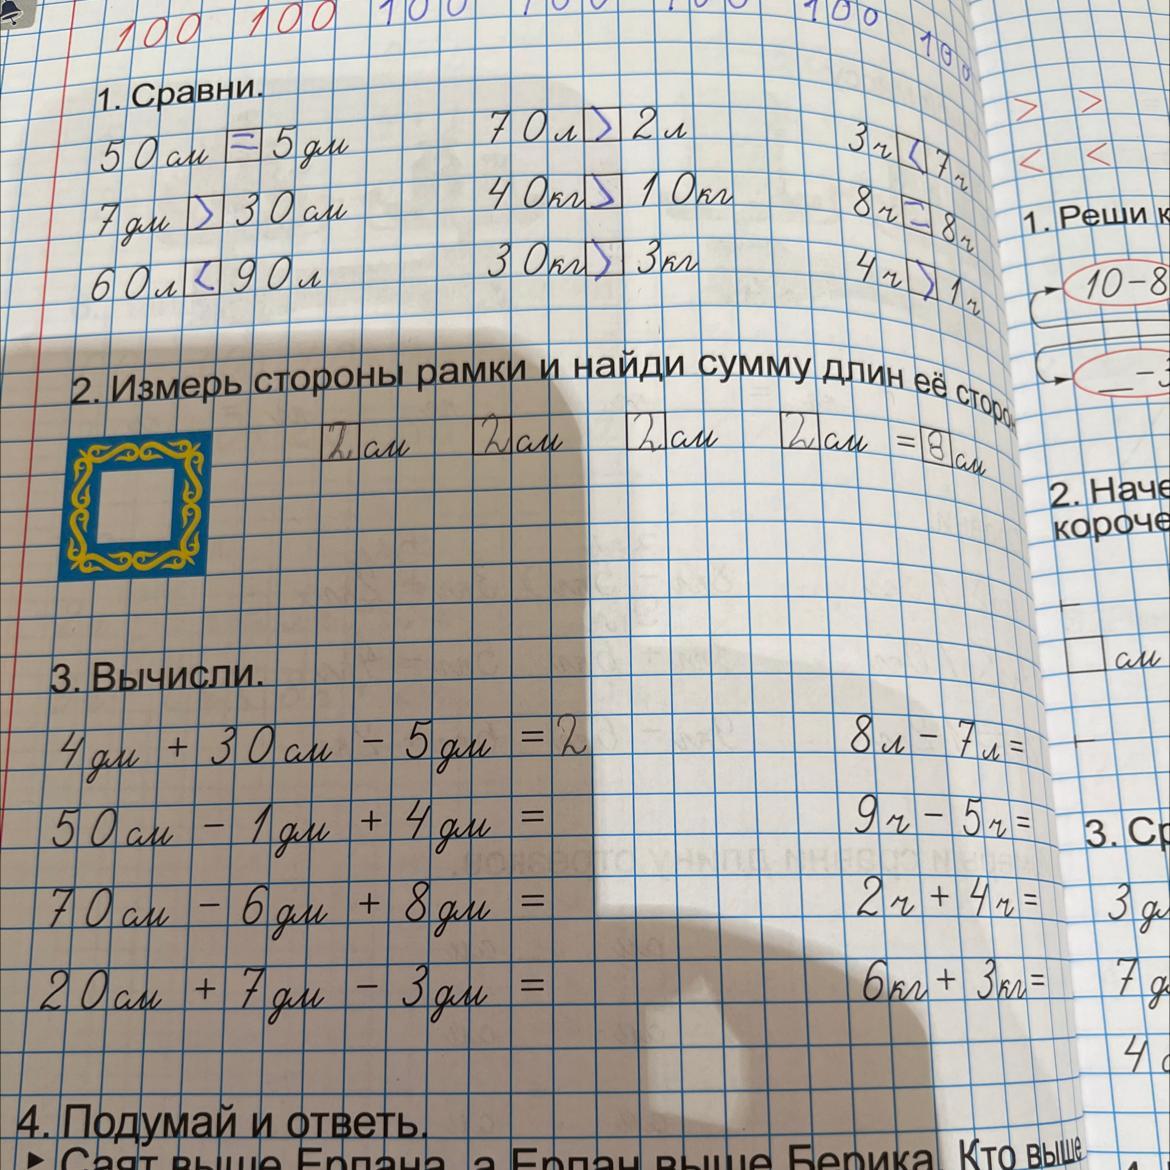 100 100 100 100 100 100 100
1. Сравни.
50 см = 5 дм 70 л > 2 л 3 ч < 7 ч
7 дм > 30 см 40 кг > 10 кг 8 ч = 8 ч
60 л < 90 л 30 кг > 3 кг 4 ч > 1 ч
2. Измерь стороны рамки и найди сумму длин её сторон
2 см 2 см 2 см 2 см = 8 см
3. Вычисли.
4 дм + 30 см - 5 дм = 2 8 л - 7 л =
50 см - 1 дм + 4 дм = 9 ч - 5 ч =
70 см - 6 дм + 8 дм = 2 ч + 4 ч =
20 см + 7 дм - 3 дм = 6 кг + 3 кг =
4. Подумай и ответь.
▶ Саят выше Ерлана, а Ерлан выше Берика. Кто выше
> >
< <
1. Реши
10-8
_-3
2. Наче
короче
см
3. Ср
3 д
7 д
4